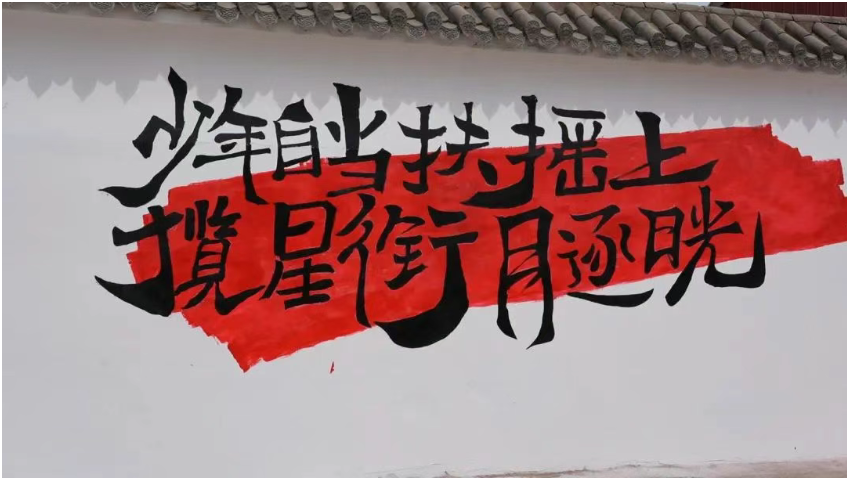 少年自当扶摇上
揽星衔月逐晄